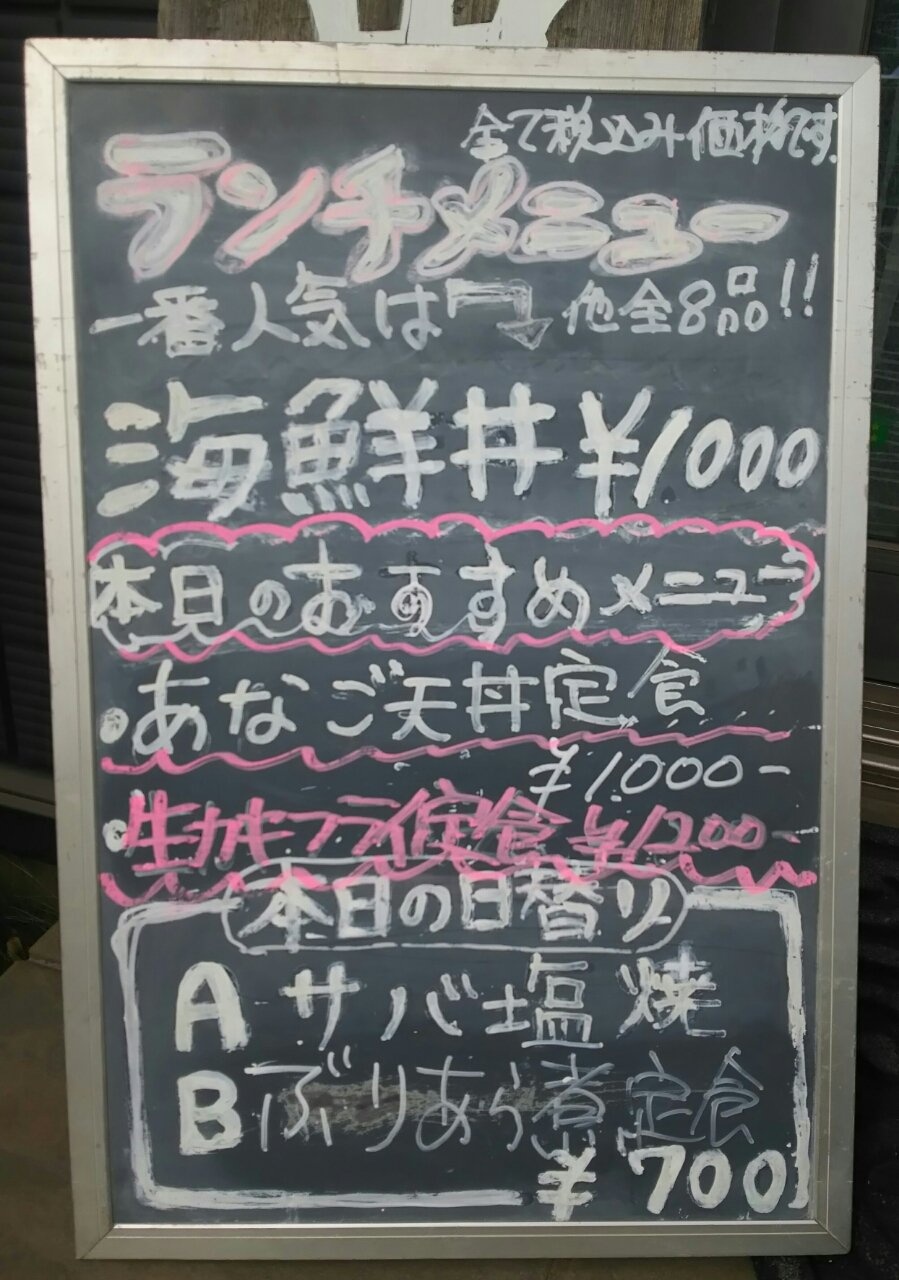 全て税込み価格です.
ランチメニュー
一番人気は 他全8品!!
海鮮丼 ¥1000
本日のおすすめメニュー
・あなご天丼定食
¥1.000-
・生カキフライ定食 ¥1200-
本日の日替り
A サバ塩焼
B ぶりあら煮定食
¥700